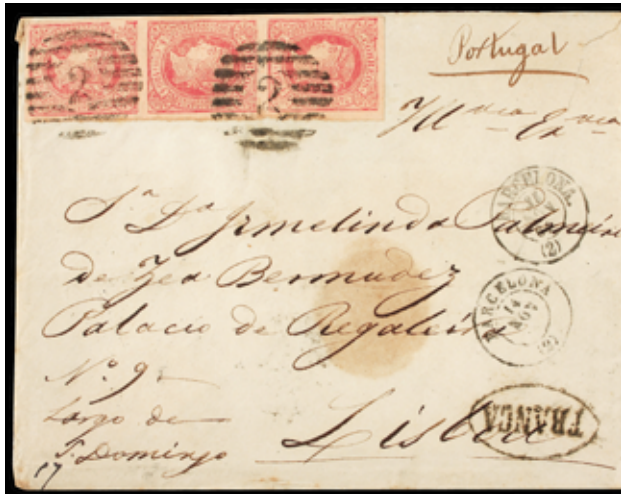 2 2
Portugal
Illma Exma
Sra Da Irmelinda Palmeiro
de Zea Bermudez
Palacio de Regaleira
No. 9
Largo de
S. Domingo
17
Lisboa
BARCELONA
(2)
BARCELONA
14
NOV
(2)
FRANCA